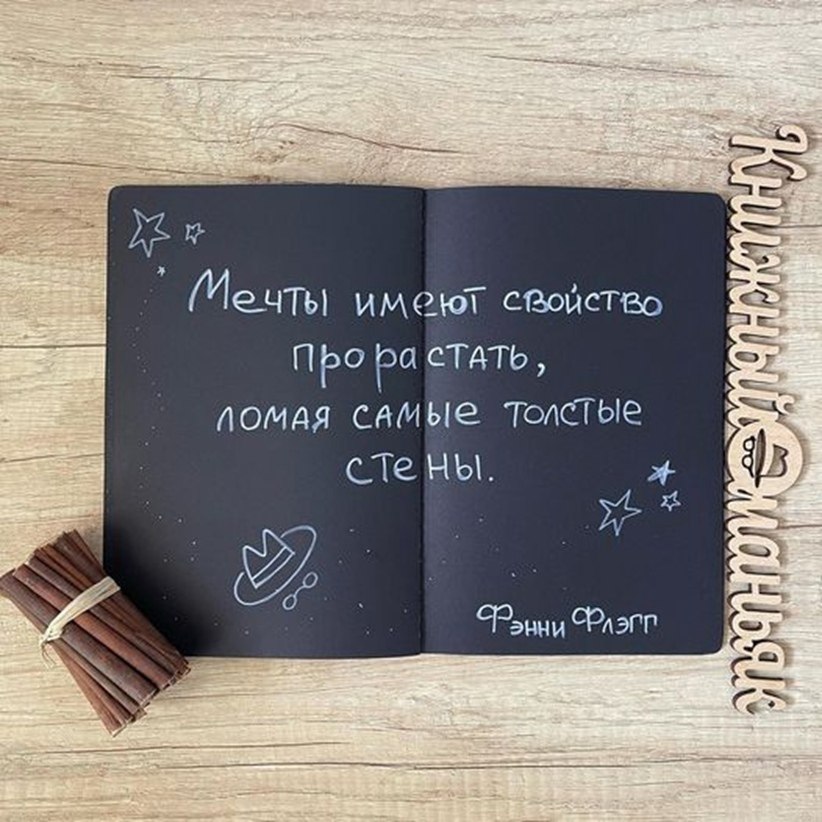 Мечты имеют свойство
прорастать,
ломая самые толстые
стены.
Фэнни Флэгг
Книжный маньяк